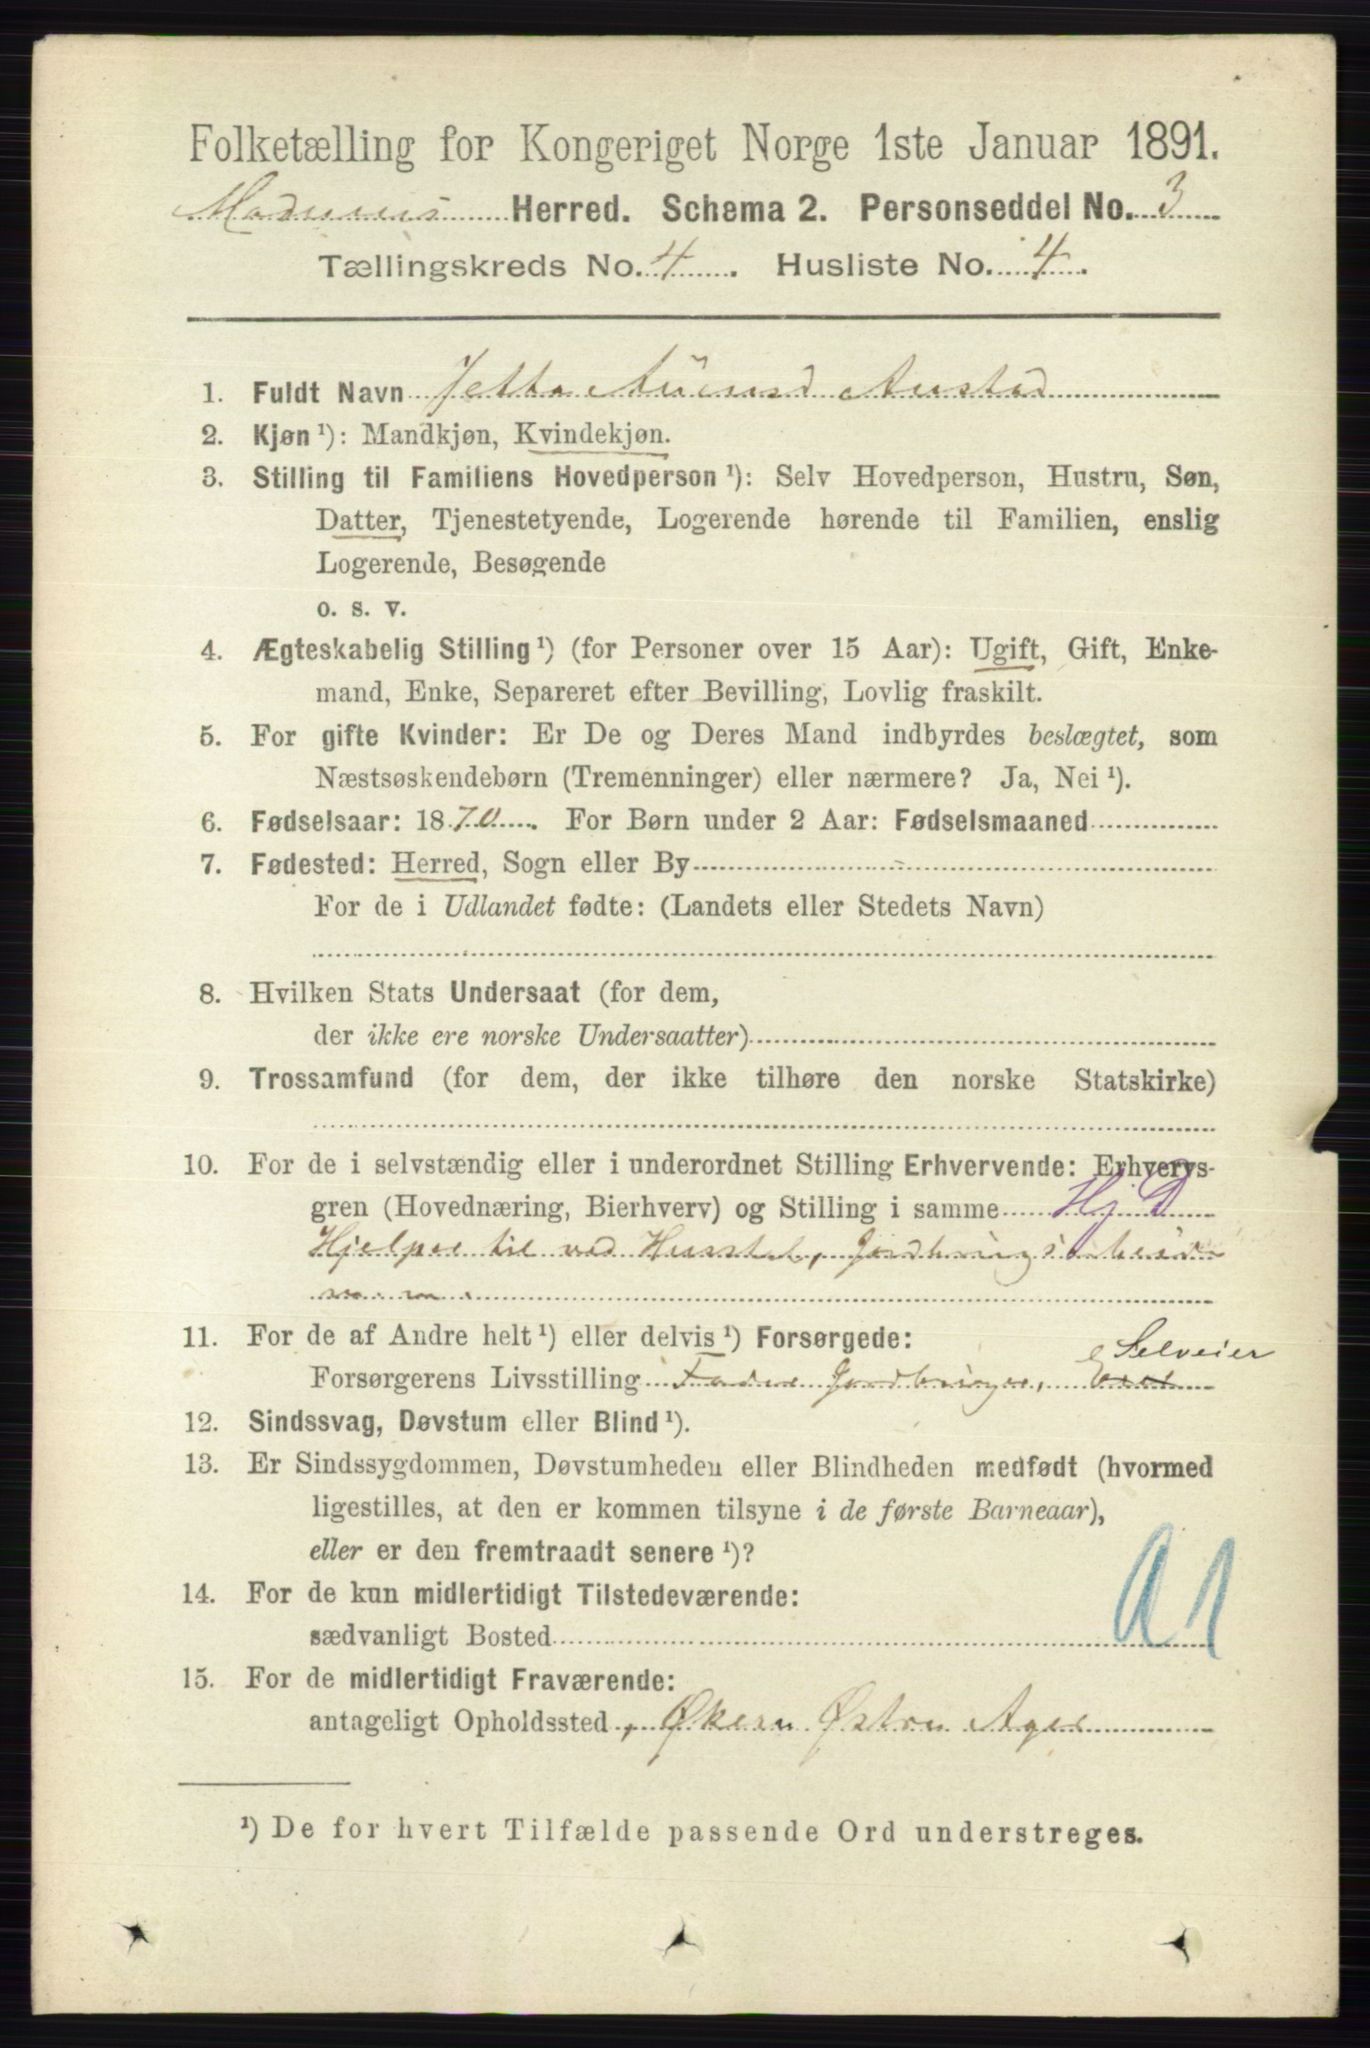 Folketælling for Kongeriget Norge 1ste Januar 1891.
Modums Herred. Schema 2. Personseddel No. 3
Tællingskreds No. 4. Husliste No. 4.
1. Fuldt Navn Jetta Austad
2. Kjøn ¹): Mandkjøn, Kvindekjøn.
3. Stilling til Familiens Hovedperson ¹): Selv Hovedperson, Hustru, Søn,
Datter, Tjenestetyende, Logerende hørende til Familien, enslig
Logerende, Besøgende
o. s. v.
4. Ægteskabelig Stilling ¹) (for Personer over 15 Aar): Ugift, Gift, Enke-
mand, Enke, Separeret efter Bevilling, Lovlig fraskilt.
5. For gifte Kvinder: Er De og Deres Mand indbyrdes beslægtet, som
Næstsøskendebørn (Tremenninger) eller nærmere? Ja, Nei ¹).
6. Fødselsaar: 1870. For Børn under 2 Aar: Fødselsmaaned
7. Fødested: Herred, Sogn eller By
For de i Udlandet fødte: (Landets eller Stedets Navn)
8. Hvilken Stats Undersaat (for dem,
der ikke ere norske Undersaatter)
9. Trossamfund (for dem, der ikke tilhøre den norske Statskirke)
10. For de i selvstændig eller i underordnet Stilling Erhvervende: Erhvervs-
gren (Hovednæring, Bierhverv) og Stilling i samme Hj D
Hjelper til ved Husstel, Jordbrugsarbeide
m. m.
11. For de af Andre helt ¹) eller delvis ¹) Forsørgede:
Selveier
Forsørgerens Livsstilling Fader Jordbruger,
12. Sindssvag, Døvstum eller Blind ¹).
13. Er Sindssygdommen, Døvstumheden eller Blindheden medfødt (hvormed
ligestilles, at den er kommen tilsyne i de første Barneaar),
eller er den fremtraadt senere ¹)?
14. For de kun midlertidigt Tilstedeværende:
sædvanligt Bosted
15. For de midlertidigt Fraværende:
antageligt Opholdssted, Økern Østre Aker
¹) De for hvert Tilfælde passende Ord understreges.